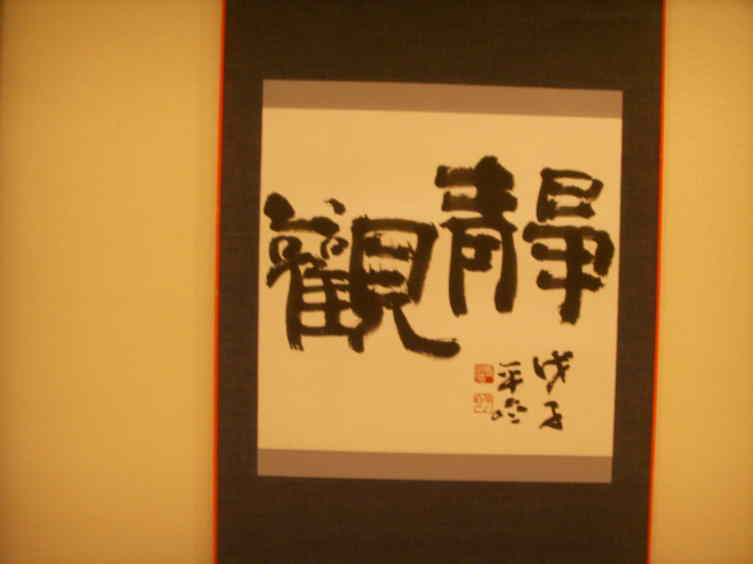 靜觀
戊子
平